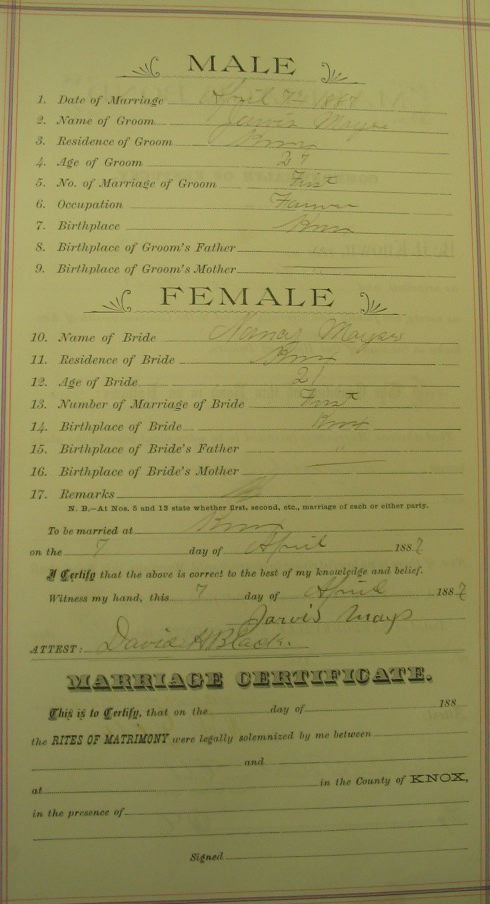 MALE
1. Date of Marriage April 7th 1887
2. Name of Groom Jarvis Mayes
3. Residence of Groom Knox
4. Age of Groom 27
5. No. of Marriage of Groom First
6. Occupation Farmer
7. Birthplace Knox
8. Birthplace of Groom's Father
9. Birthplace of Groom's Mother
FEMALE
10. Name of Bride Nancy Mayes
11. Residence of Bride Knox
12. Age of Bride 21
13. Number of Marriage of Bride First
14. Birthplace of Bride Knox
15. Birthplace of Bride's Father "
16. Birthplace of Bride's Mother
17. Remarks
N. B.—At Nos. 5 and 13 state whether first, second, etc., marriage of each or either party.
To be married at Knox
on the 7 day of April 1887
I Certify that the above is correct to the best of my knowledge and belief.
Witness my hand, this 7 day of April 1887
Jarvis Mays
ATTEST: David H Black.
MARRIAGE CERTIFICATE.
This is to Certify, that on the day of 188
the RITES OF MATRIMONY were legally solemnized by me between
and
at in the County of KNOX,
in the presence of
Signed